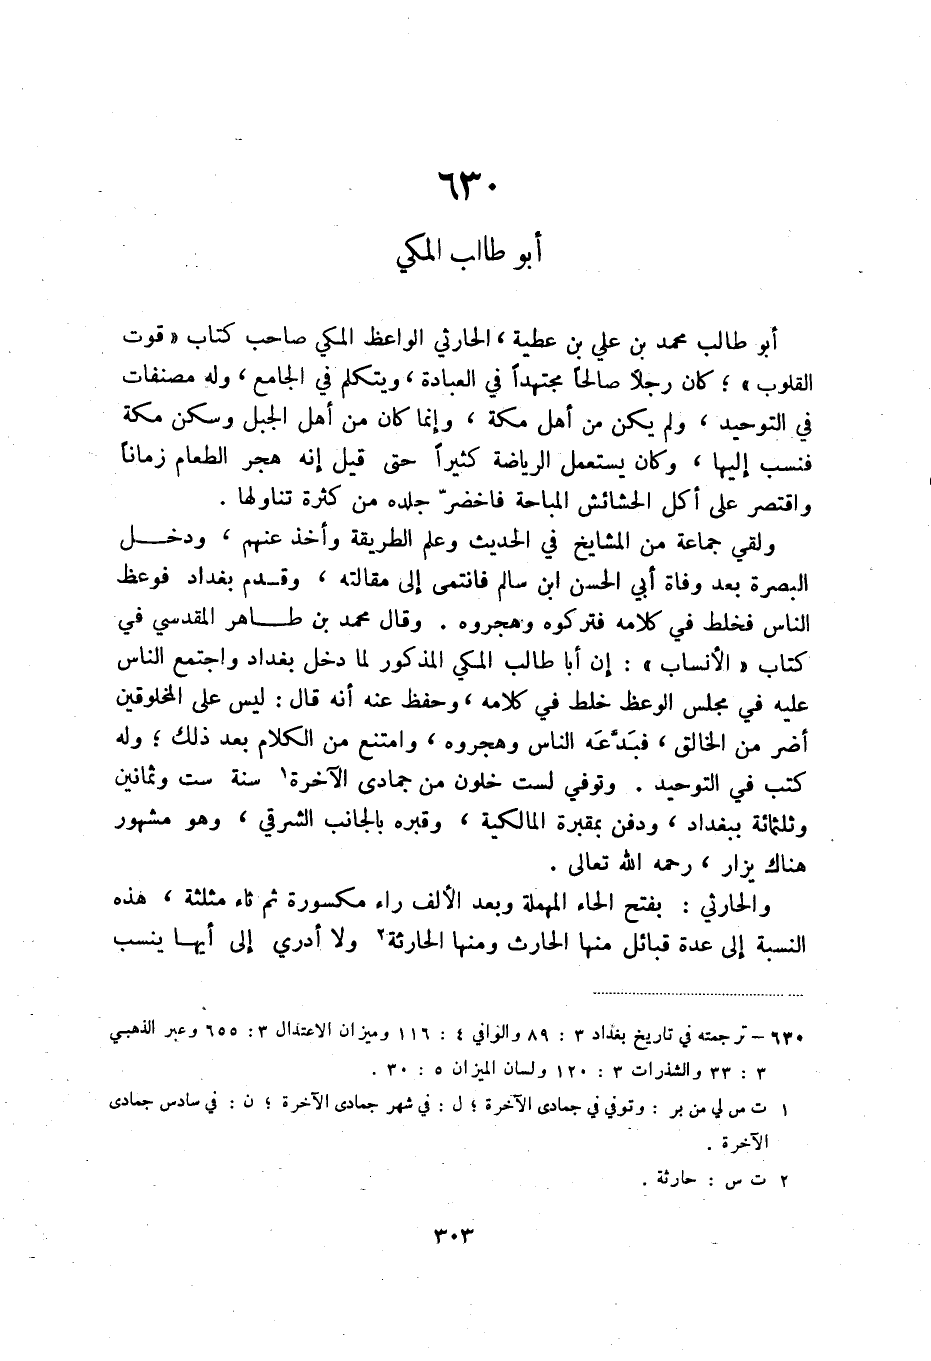 ٦٣٠
أبو طالب المكي
أبو طالب محمد بن علي بن عطية ، الحارثي الواعظ المكي صاحب كتاب « قوت
القلوب » ؛ كان رجلاً صالحاً مجتهداً في العبادة ، ويتكلم في الجامع ، وله مصنفات
في التوحيد ، ولم يكن من أهل مكة ، وإنما كان من أهل الجبل وسكن مكة
فنسب إليها ، وكان يستعمل الرياضة كثيراً حتى قيل إنه هجر الطعام زماناً
واقتصر على أكل الحشائش المباحة فاخضرّ جلده من كثرة تناولها .
ولقي جماعة من المشايخ في الحديث وعلم الطريقة وأخذ عنهم ، ودخل
البصرة بعد وفاة أبي الحسن ابن سالم فانتمى إلى مقالته ، وقدم بغداد فوعظ
الناس فخلط في كلامه فتركوه وهجروه . وقال محمد بن طاهر المقدسي في
كتاب « الأنساب » : إن أبا طالب المكي المذكور لما دخل بغداد واجتمع الناس
عليه في مجلس الوعظ خلط في كلامه ، وحفظ عنه أنه قال : ليس على المخلوقين
أضر من الخالق ، فبَدَّعَه الناس وهجروه ، وامتنع من الكلام بعد ذلك ؛ وله
كتب في التوحيد . وتوفي لست خلون من جمادى الآخرة١ سنة ست وثمانين
وثلثمائة ببغداد ، ودفن بمقبرة المالكية ، وقبره بالجانب الشرقي ، وهو مشهور
هناك يزار ، رحمه الله تعالى .
والحارثي : بفتح الحاء المهملة وبعد الألف راء مكسورة ثم ثاء مثلثة ، هذه
النسبة إلى عدة قبائل منها الحارث ومنها الحارثة٢ ولا أدري إلى أيها ينسب
٦٣٠ – ترجمته في تاريخ بغداد ٣ : ٨٩ والوافي ٤ : ١١٦ وميزان الاعتدال ٣ : ٦٥٥ وعبر الذهبي
٣ : ٣٣ والشذرات ٣ : ١٢٠ ولسان الميزان ٥ : ٣٠ .
١ ت س لي من بر : وتوفي في جمادى الآخرة ؛ ل : في شهر جمادى الآخرة ؛ ن : في سادس جمادى
الآخرة .
٢ ت س : حارثة .
٣٠٣